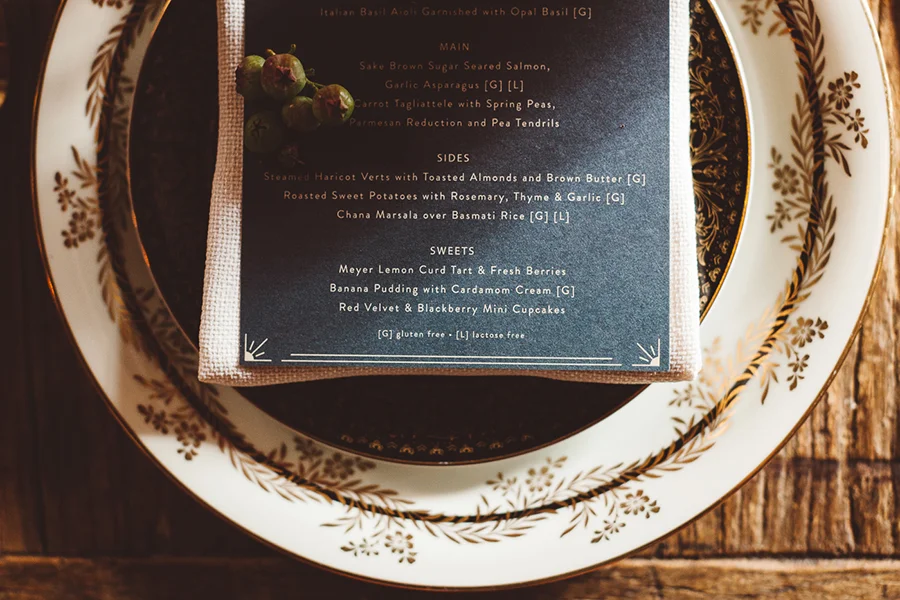 Italian Basil Aioli Garnished with Opal Basil [G]
MAIN
Sake Brown Sugar Seared Salmon,
Garlic Asparagus [G] [L]
Carrot Tagliattele with Spring Peas,
Parmesan Reduction and Pea Tendrils
SIDES
Steamed Haricot Verts with Toasted Almonds and Brown Butter [G]
Roasted Sweet Potatoes with Rosemary, Thyme & Garlic [G]
Chana Marsala over Basmati Rice [G] [L]
SWEETS
Meyer Lemon Curd Tart & Fresh Berries
Banana Pudding with Cardamom Cream [G]
Red Velvet & Blackberry Mini Cupcakes
[G] gluten free • [L] lactose free